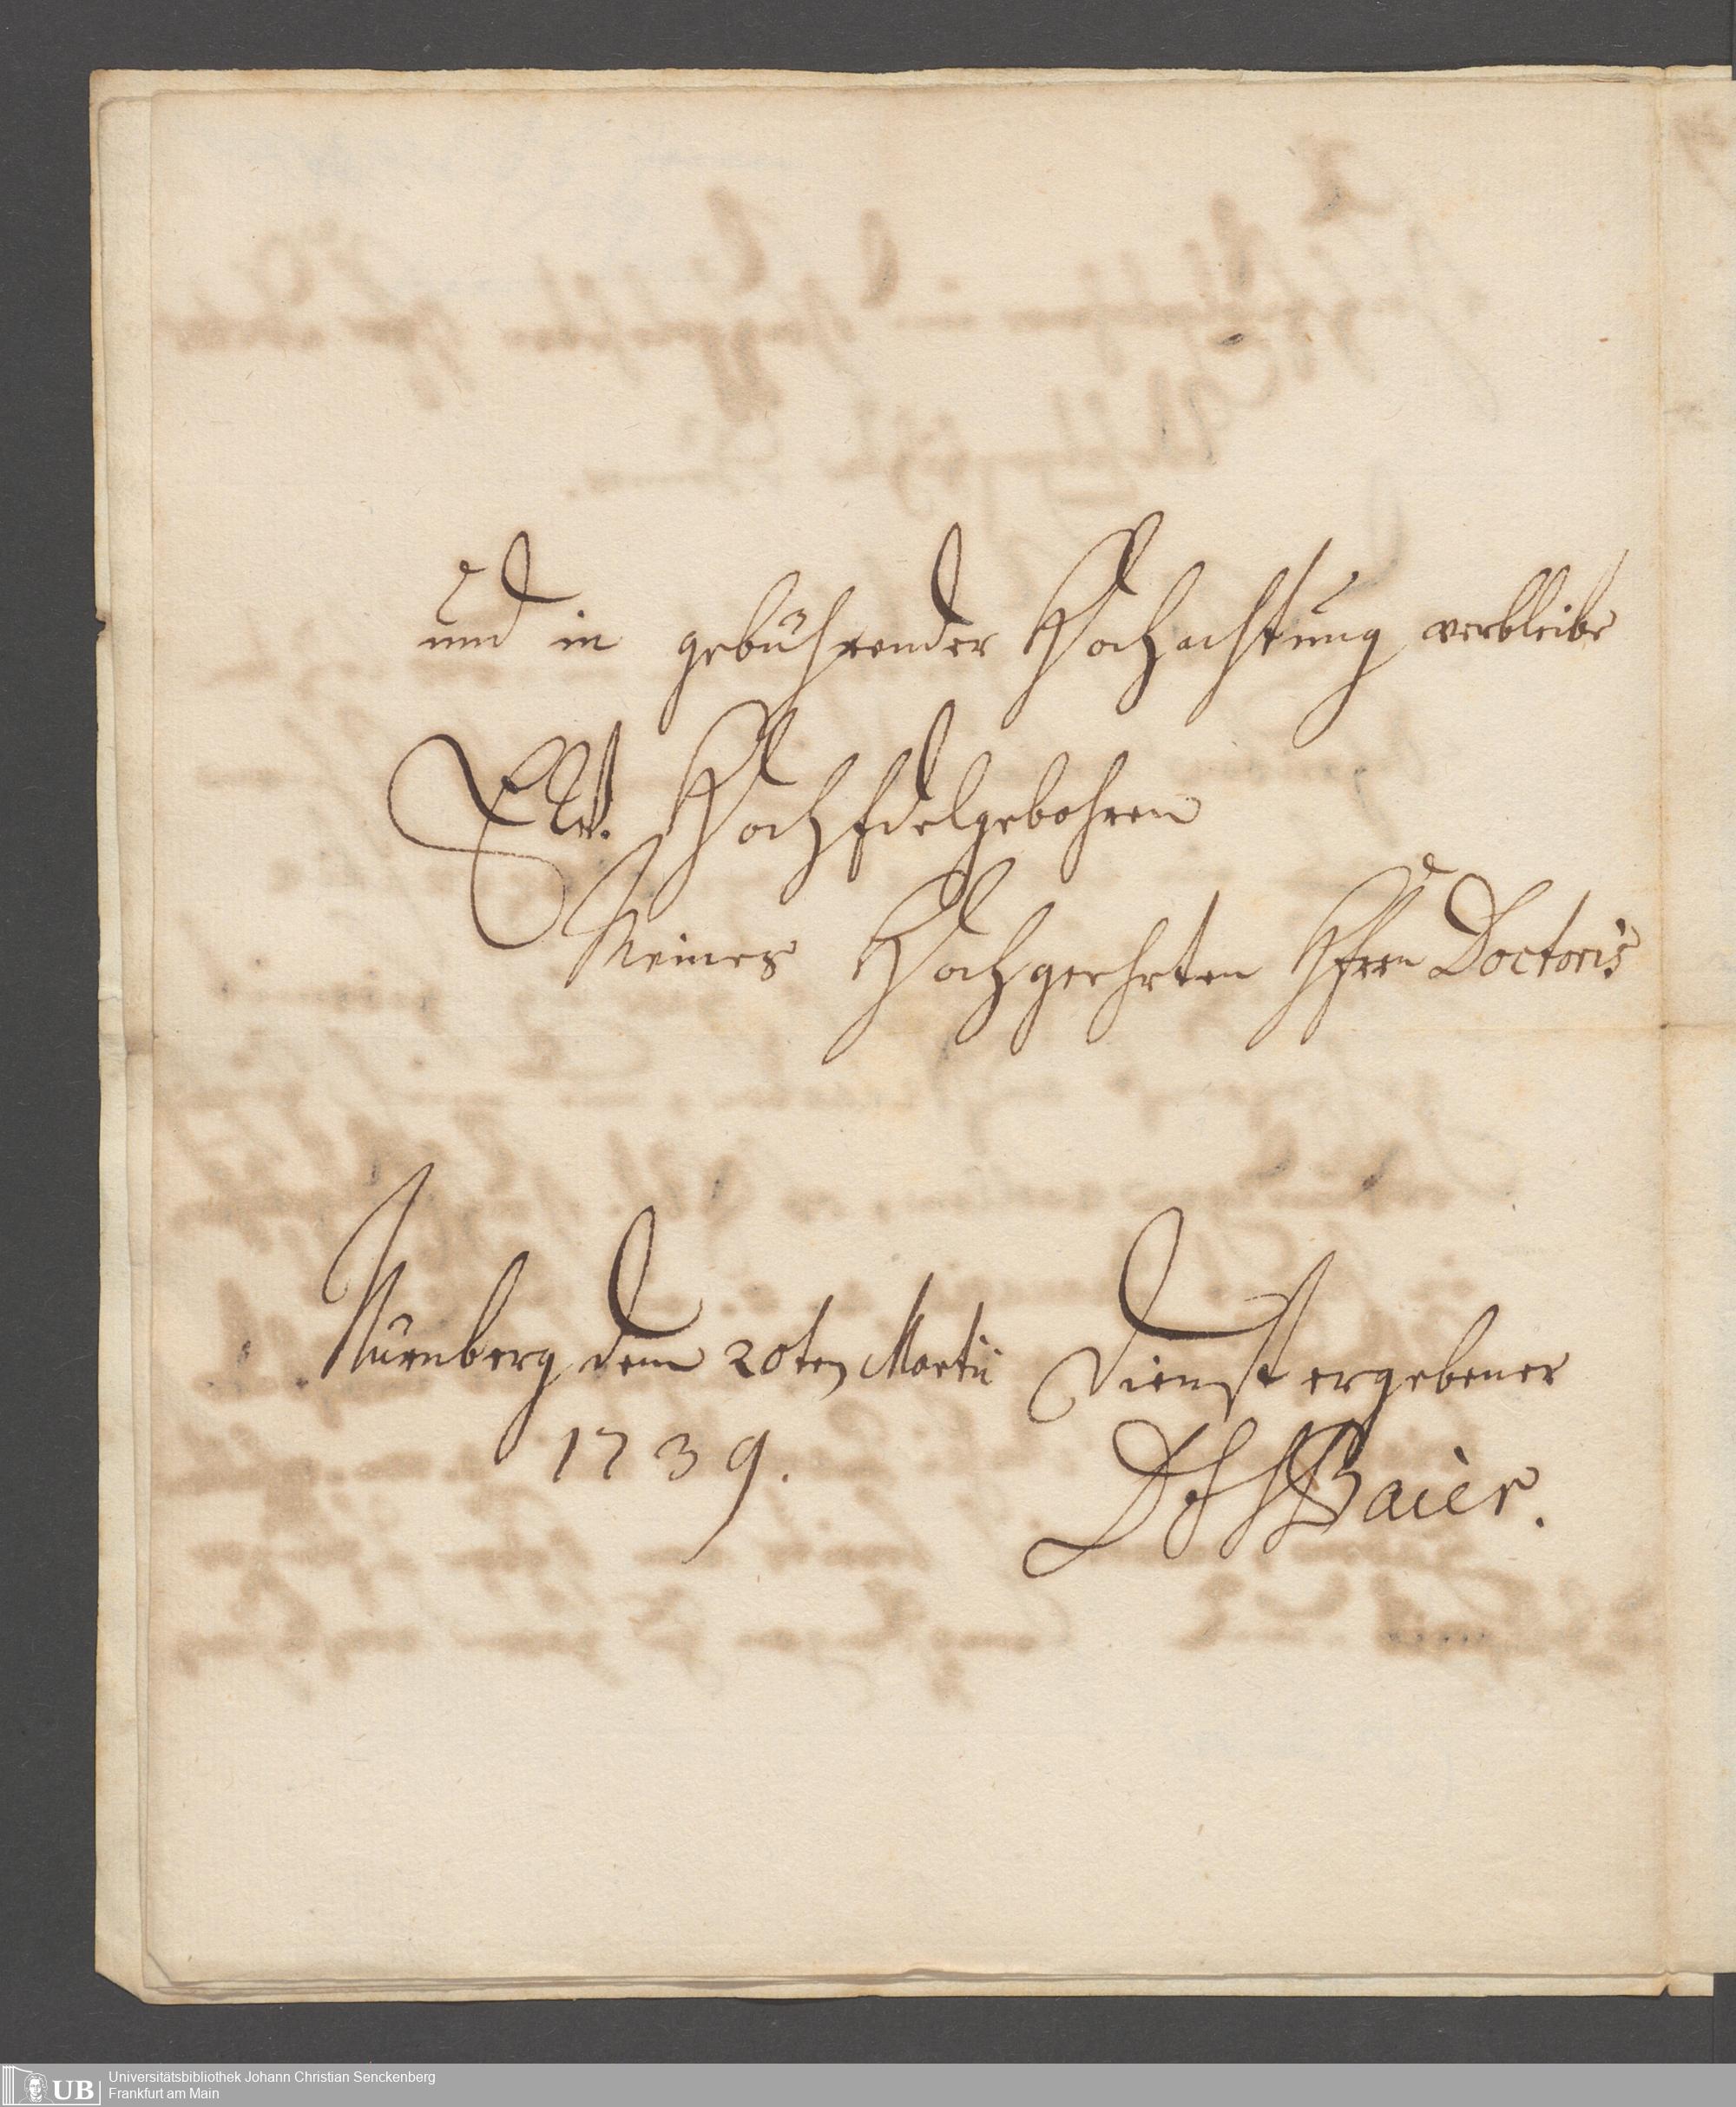 und in gebührender Hochachtung verbleibe
Ew. HochEdelgebohren
Meines Hochgeehrten Herrn Doctoris
Nürnberg den 20ten Martii
1739.
Dienst ergebener
Baier.
UB
Universitätsbibliothek Johann Christian Senckenberg
Frankfurt am Main